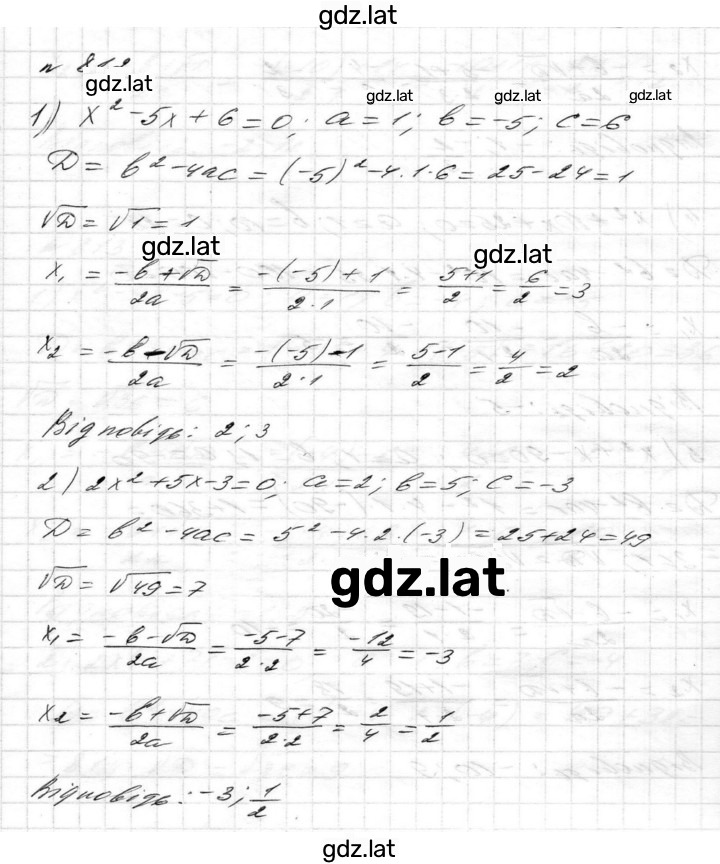 gdz.lat
№ 819
gdz.lat gdz.lat gdz.lat gdz.lat
1) x² - 5x + 6 = 0; a = 1; b = -5; c = 6
D = b² - 4ac = (-5)² - 4·1·6 = 25 - 24 = 1
√D = √1 = 1
gdz.lat gdz.lat
x₁ = (-b + √D)/(2a) = (-(-5) + 1)/(2·1) = (5+1)/2 = 6/2 = 3
x₂ = (-b - √D)/(2a) = (-(-5) - 1)/(2·1) = (5-1)/2 = 4/2 = 2
Відповідь: 2; 3
2) 2x² + 5x - 3 = 0; a = 2; b = 5; c = -3
D = b² - 4ac = 5² - 4·2·(-3) = 25 + 24 = 49
√D = √49 = 7
gdz.lat
x₁ = (-b - √D)/(2a) = (-5-7)/(2·2) = (-12)/4 = -3
x₂ = (-b + √D)/(2a) = (-5+7)/(2·2) = 2/4 = 1/2
Відповідь: -3; 1/2
gdz.lat